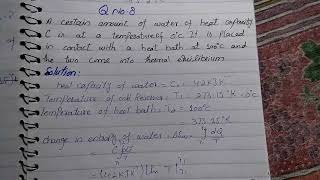 Q No:8
A certain amount of water of heat capacity
C is at a temperature of 0°C. It is placed
in contact with a heat bath at 100°C and
the two come into thermal equilibrium
Solution:
heat capacity of water = C = 4.2KJK⁻¹
Temperature of = T₁ = 273.15
Temperature of heat bath = T₂ = 100°C
373.15°K
change in entropy of water = ∫ dQ
T